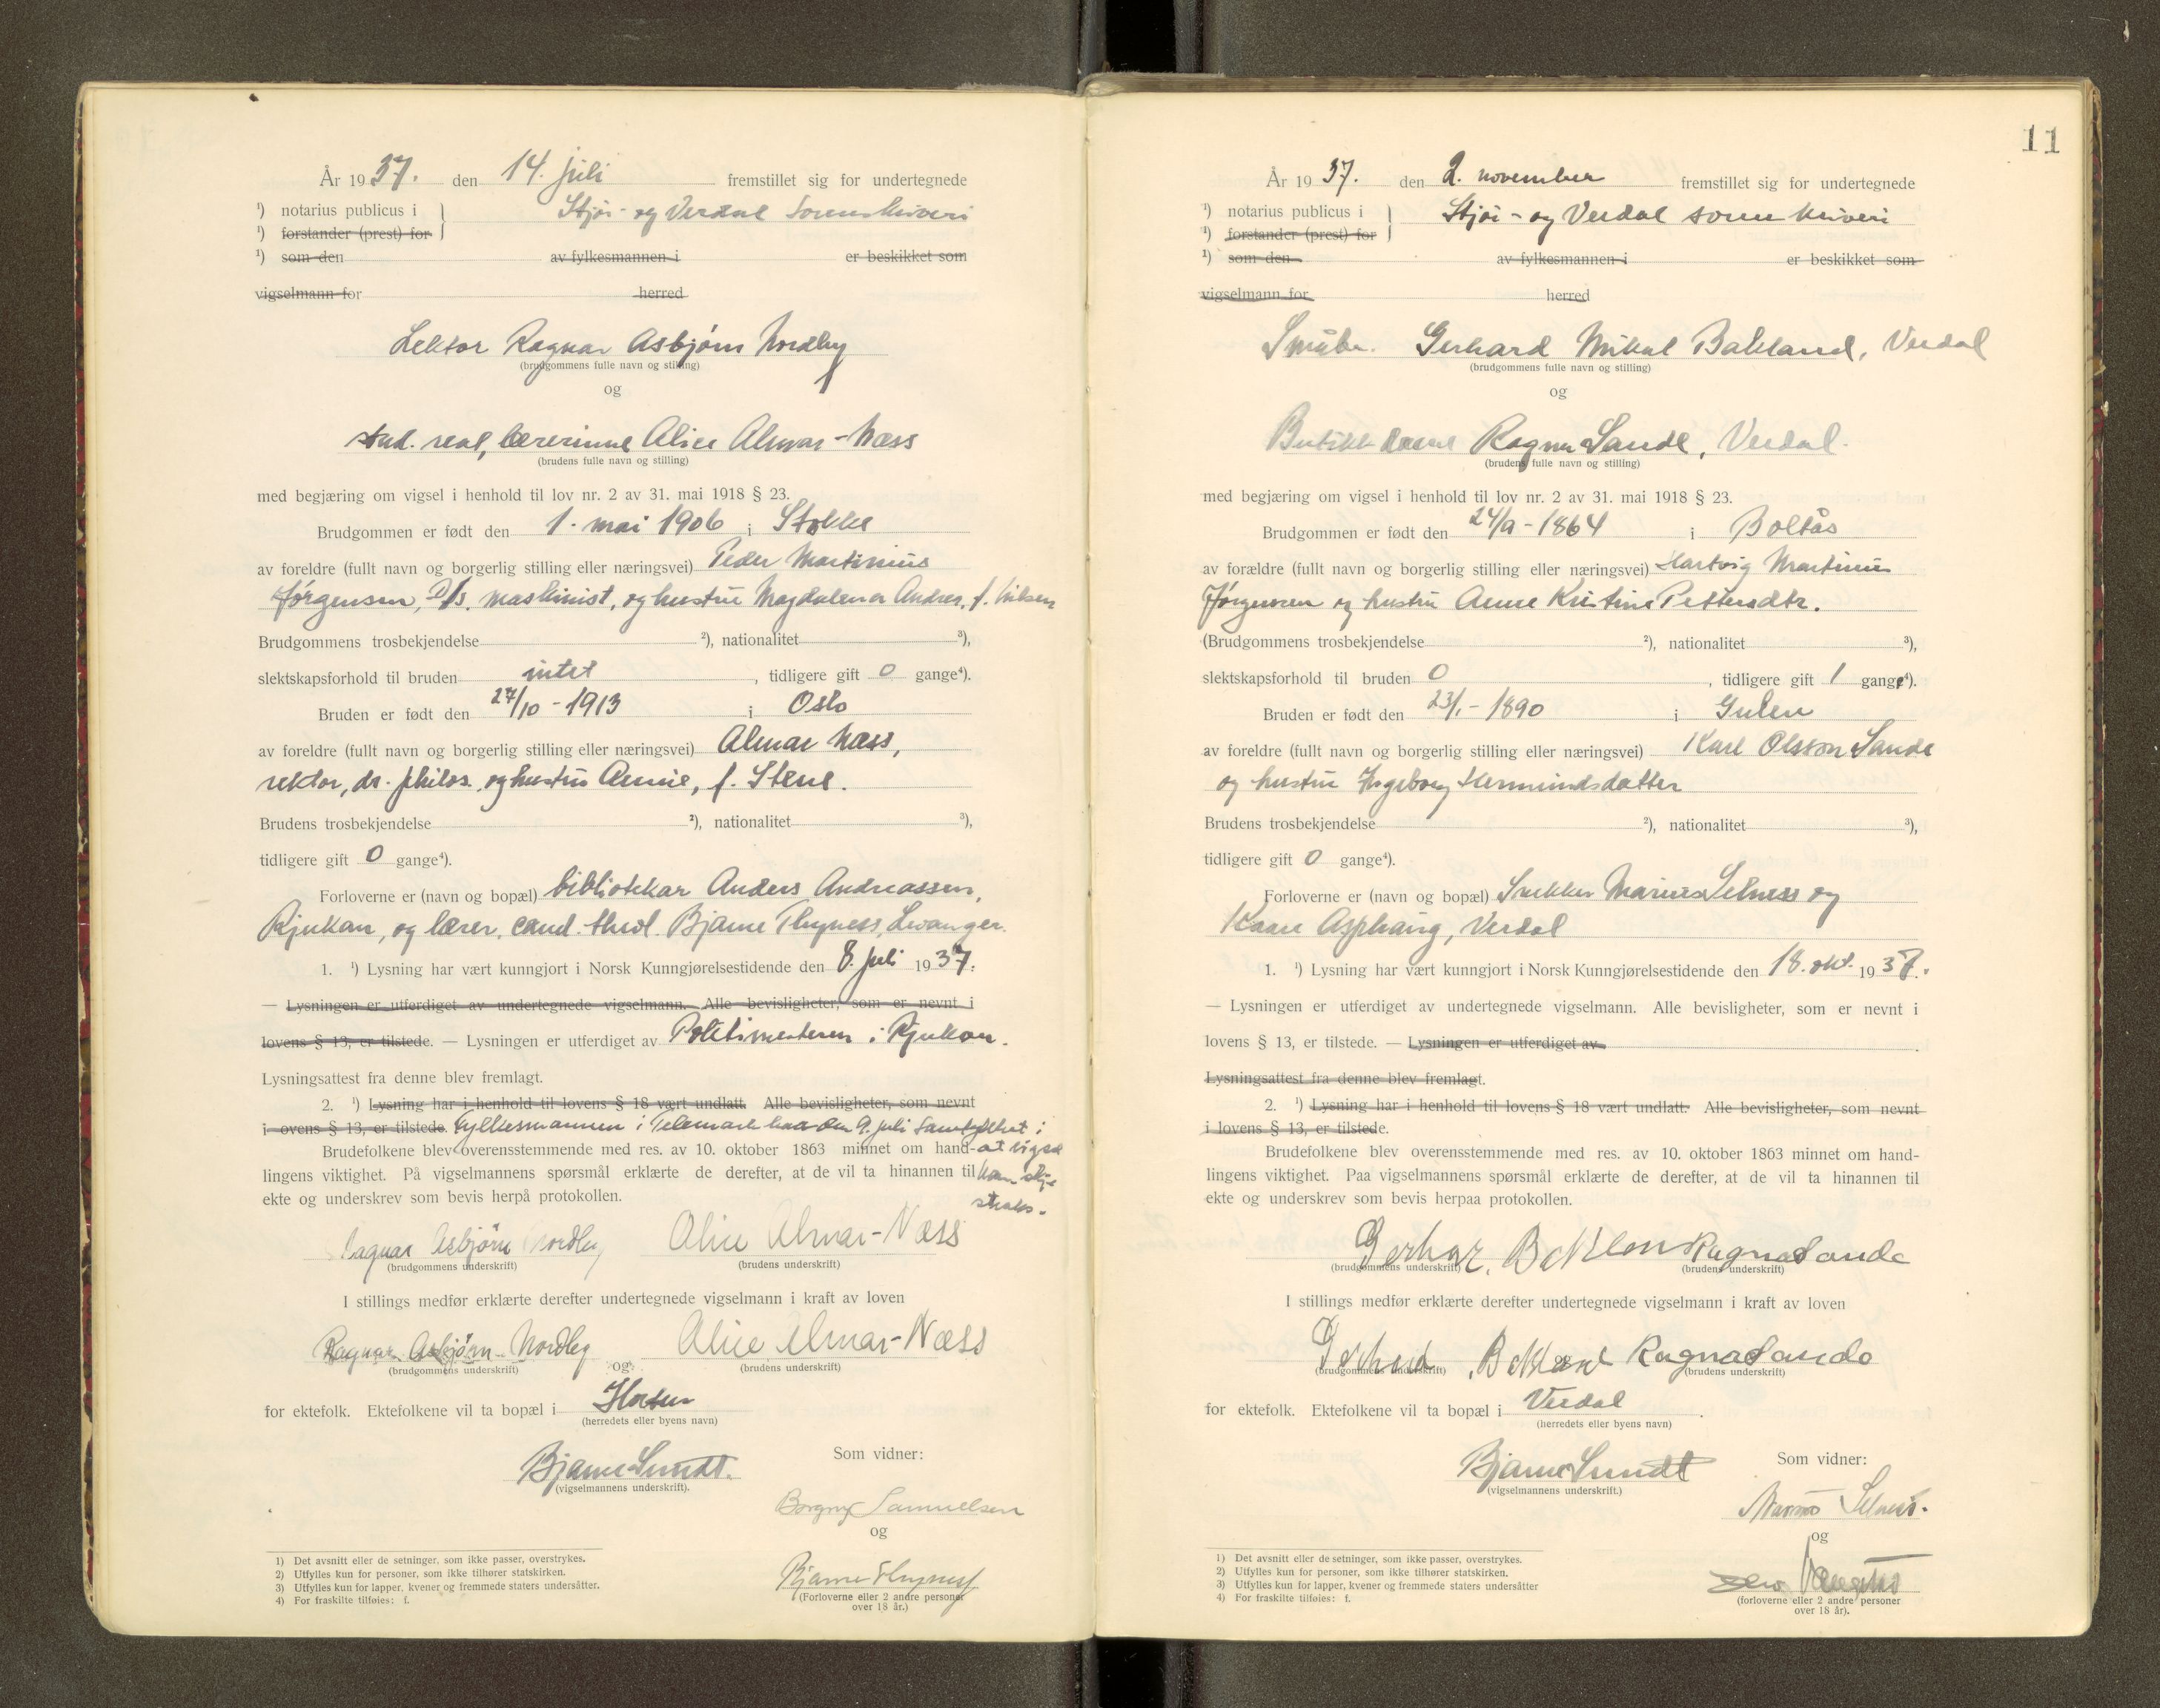 År 1937. den 14. juli fremstillet sig for undertegnede
¹) notarius publicus i Stjør- og Verdal Sorenskriveri
¹) forstander (prest) for
¹) som den av fylkesmannen i er beskikket som
vigselmann for herred
Lektor Ragnar Asbjørn Nordby
(brudgommens fulle navn og stilling)
og
stud. real, lærerinne Alice Almar-Næss
(brudens fulle navn og stilling)
med begjæring om vigsel i henhold til lov nr. 2 av 31. mai 1918 § 23.
Brudgommen er født den 1. mai 1906 i Stokke
av foreldre (fullt navn og borgerlig stilling eller næringsvei) Peder Martinius
Jørgensen, D/s. maskinist, og hustru Magdalena Andrea, f. Nilsen
Brudgommens trosbekjendelse ²), nationalitet ³),
slektskapsforhold til bruden intet, tidligere gift 0 gange⁴).
Bruden er født den 27/10 - 1913 i Oslo
av foreldre (fullt navn og borgerlig stilling eller næringsvei) Almar Næss,
rektor, dr. philos., og hustru Annie, f. Stene.
Brudens trosbekjendelse ²), nationalitet ³),
tidligere gift 0 gange⁴).
Forloverne er (navn og bopæl) bibliotekar Anders Andreassen,
Rjukan, og lærer, cand. theol. Bjarne Thyness, Levanger.
1. ¹) Lysning har vært kunngjort i Norsk Kunngjørelsestidende den 8. juli 1937.
— Lysningen er utferdiget av undertegnede vigselmann. Alle bevisligheter, som er nevnt i
lovens § 13, er tilstede. — Lysningen er utferdiget av Politimesteren i Rjukan.
Lysningsattest fra denne blev fremlagt.
2. ¹) Lysning har i henhold til lovens § 18 vært undlatt. Alle bevisligheter, som nevnt
i lovens § 13, er tilstede. Fylkesmannen i Telemark har den 9. juli samtykket i
Brudefolkene blev overensstemmende med res. av 10. oktober 1863 minnet om hand- at vigsel
lingens viktighet. På vigselmannens spørsmål erklærte de derefter, at de vil ta hinannen til kan skje
ekte og underskrev som bevis herpå protokollen. straks.
Ragnar Asbjørn Nordby Alice Almar-Næss
(brudgommens underskrift) (brudens underskrift)
I stillings medfør erklærte derefter undertegnede vigselmann i kraft av loven
Ragnar Asbjørn Nordby og Alice Almar-Næss
(brudgommens underskrift) (brudens underskrift)
for ektefolk. Ektefolkene vil ta bopæl i Horten
(herredets eller byens navn)
Bjarne Sundt. Som vidner:
(vigselmannens underskrift).
Borgny Samuelsen
og
Bjarne Thyness
(Forloverne eller 2 andre personer
over 18 år.)
1) Det avsnitt eller de setninger, som ikke passer, overstrykes.
2) Utfylles kun for personer, som ikke tilhører statskirken.
3) Utfylles kun for lapper, kvener og fremmede staters undersåtter.
4) For fraskilte tilføies: f.
11
År 1937. den 2. november fremstillet sig for undertegnede
¹) notarius publicus i Stjør- og Verdal sorenskriveri
¹) forstander (prest) for
¹) som den av fylkesmannen i er beskikket som
vigselmann for herred
Gerhard Mikal Bakland, Verdal
(brudgommens fulle navn og stilling)
og
Butikkdame Ragna Sande, Verdal.
(brudens fulle navn og stilling)
med begjæring om vigsel i henhold til lov nr. 2 av 31. mai 1918 § 23.
Brudgommen er født den 24/9 - 1864 i Boltås
av forældre (fullt navn og borgerlig stilling eller næringsvei) Hartvig Martinus
Jørgensen og hustru Anne Kristine Pettersdtr.
(Brudgommens trosbekjendelse ²), nationalitet ³),
slektskapsforhold til bruden 0, tidligere gift 1 gange⁴).
Bruden er født den 23/1 - 1890 i Gulen
av foreldre (fullt navn og borgerlig stilling eller næringsvei) Karl Olsson Sande
og hustru Ingeborg Hermundsdatter
Brudens trosbekjendelse ²), nationalitet ³),
tidligere gift 0 gange⁴).
Forloverne er (navn og bopæl) Snekker Marius Selness og
Kaare Asphaug, Verdal
1. ¹) Lysning har vært kunngjort i Norsk Kunngjørelsestidende den 18. okt. 1937.
— Lysningen er utferdiget av undertegnede vigselmann. Alle bevisligheter, som er nevnt i
lovens § 13, er tilstede. — Lysningen er utferdiget av
Lysningsattest fra denne blev fremlagt.
2. ¹) Lysning har i henhold til lovens § 18 vært undlatt. Alle bevisligheter, som nevnt
i lovens § 13, er tilstede.
Brudefolkene blev overensstemmende med res. av 10. oktober 1863 minnet om hand-
lingens viktighet. Paa vigselmannens spørsmål erklærte de derefter, at de vil ta hinannen til
ekte og underskrev som bevis herpaa protokollen.
Ragna Sande
(brudgommens underskrift) (brudens underskrift)
I stillings medfør erklærte derefter undertegnede vigselmann i kraft av loven
Ragna Sande
(brudgommens underskrift) (brudens underskrift)
for ektefolk. Ektefolkene vil ta bopæl i Verdal.
(herredets eller byens navn)
Bjarne Sundt Som vidner:
(vigselmannens underskrift.)
Selness.
og
(forloverne eller 2 andre personer
over 18 år).
1) Det avsnitt eller de setninger, som ikke passer, overstrykes.
2) Utfylles kun for personer, som ikke tilhører statskirken.
3) Utfylles kun for lapper, kvener og fremmede staters undersåtter
4) For fraskilte tilføies: f.